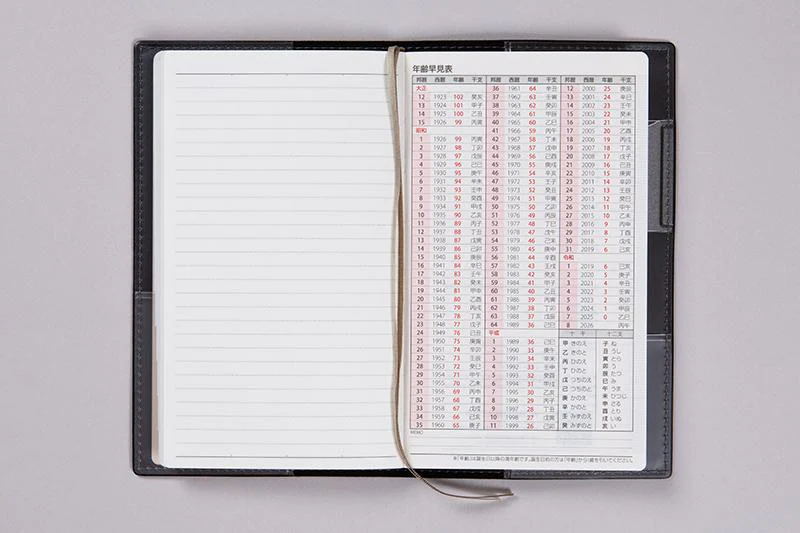 年齢早見表
邦暦 西暦 年齢 干支
大正
12 1923 102 癸亥
13 1924 101 甲子
14 1925 100 乙丑
15 1926 99 丙寅
昭和
1 1926 99 丙寅
2 1927 98 丁卯
3 1928 97 戊辰
4 1929 96 己巳
5 1930 95 庚午
6 1931 94 辛未
7 1932 93 壬申
8 1933 92 癸酉
9 1934 91 甲戌
10 1935 90 乙亥
11 1936 89 丙子
12 1937 88 丁丑
13 1938 87 戊寅
14 1939 86 己卯
15 1940 85 庚辰
16 1941 84 辛巳
17 1942 83 壬午
18 1943 82 癸未
19 1944 81 甲申
20 1945 80 乙酉
21 1946 79 丙戌
22 1947 78 丁亥
23 1948 77 戊子
24 1949 76 己丑
25 1950 75 庚寅
26 1951 74 辛卯
27 1952 73 壬辰
28 1953 72 癸巳
29 1954 71 甲午
30 1955 70 乙未
31 1956 69 丙申
32 1957 68 丁酉
33 1958 67 戊戌
34 1959 66 己亥
35 1960 65 庚子
MEMO
邦暦 西暦 年齢 干支
36 1961 64 辛丑
37 1962 63 壬寅
38 1963 62 癸卯
39 1964 61 甲辰
40 1965 60 乙巳
41 1966 59 丙午
42 1967 58 丁未
43 1968 57 戊申
44 1969 56 己酉
45 1970 55 庚戌
46 1971 54 辛亥
47 1972 53 壬子
48 1973 52 癸丑
49 1974 51 甲寅
50 1975 50 乙卯
51 1976 49 丙辰
52 1977 48 丁巳
53 1978 47 戊午
54 1979 46 己未
55 1980 45 庚申
56 1981 44 辛酉
57 1982 43 壬戌
58 1983 42 癸亥
59 1984 41 甲子
60 1985 40 乙丑
61 1986 39 丙寅
62 1987 38 丁卯
63 1988 37 戊辰
64 1989 36 己巳
平成
1 1989 36 己巳
2 1990 35 庚午
3 1991 34 辛未
4 1992 33 壬申
5 1993 32 癸酉
6 1994 31 甲戌
7 1995 30 乙亥
8 1996 29 丙子
9 1997 28 丁丑
10 1998 27 戊寅
11 1999 26 己卯
邦暦 西暦 年齢 干支
12 2000 25 庚辰
13 2001 24 辛巳
14 2002 23 壬午
15 2003 22 癸未
16 2004 21 甲申
17 2005 20 乙酉
18 2006 19 丙戌
19 2007 18 丁亥
20 2008 17 戊子
21 2009 16 己丑
22 2010 15 庚寅
23 2011 14 辛卯
24 2012 13 壬辰
25 2013 12 癸巳
26 2014 11 甲午
27 2015 10 乙未
28 2016 9 丙申
29 2017 8 丁酉
30 2018 7 戊戌
31 2019 6 己亥
令和
1 2019 6 己亥
2 2020 5 庚子
3 2021 4 辛丑
4 2022 3 壬寅
5 2023 2 癸卯
6 2024 1 甲辰
7 2025 0 乙巳
8 2026 丙午
十干
甲 きのえ
乙 きのと
丙 ひのえ
丁 ひのと
戊 つちのえ
己 つちのと
庚 かのえ
辛 かのと
壬 みずのえ
癸 みずのと
十二支
子 ね
丑 うし
寅 とら
卯 う
辰 たつ
巳 み
午 うま
未 ひつじ
申 さる
酉 とり
戌 いぬ
亥 い
※「年齢」は誕生日以降の満年齢です。誕生日前の方は「年齢」から1歳を引いてください。